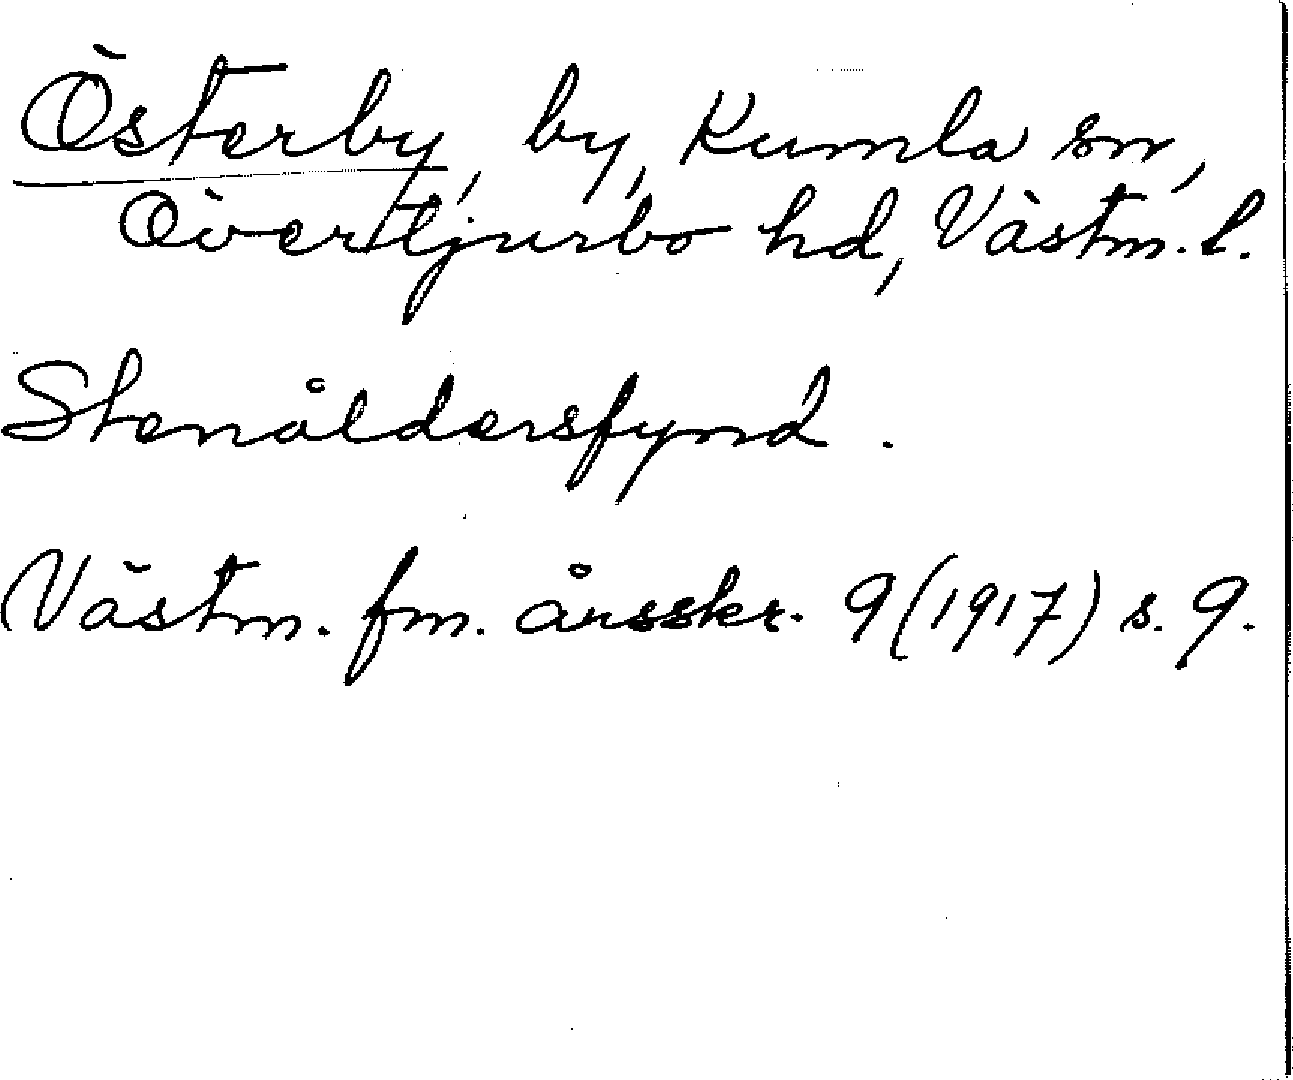 Österby, by, Kumla sn,
Övertjurbo hd, Västm. l.
Stenåldersfynd.
Västm. fm. årsskr. 9 (1917) s. 9.